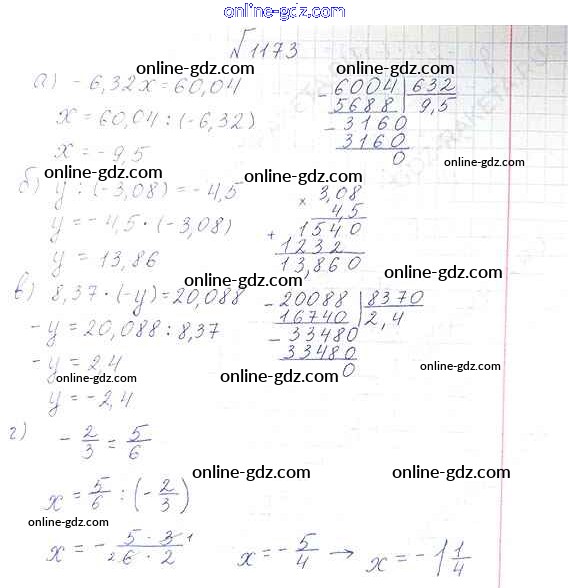 online-gdz.com
№1173
а) - 6,32x = 60,04
x = 60,04 : (-6,32)
x = - 9,5
- 6004 | 632
5688 | 9,5
- 3160
3160
0
б) y : (-3,08) = - 4,5
y = - 4,5 · (-3,08)
y = 13,86
× 3,08
4,5
+ 1540
1232
13,860
в) 8,37 · (-y) = 20,088
- y = 20,088 : 8,37
- y = 2,4
y = - 2,4
- 20088 | 8370
16740 | 2,4
- 33480
33480
0
г) - 2/3 = 5/6
x = 5/6 : (- 2/3)
x = - 5 · 3 1 / 2 6 · 2
x = - 5/4 → x = - 1 1/4
online-gdz.com
online-gdz.com
online-gdz.com
online-gdz.com
online-gdz.com
online-gdz.com
online-gdz.com
online-gdz.com
online-gdz.com
online-gdz.com
online-gdz.com
online-gdz.com
online-gdz.com
online-gdz.com